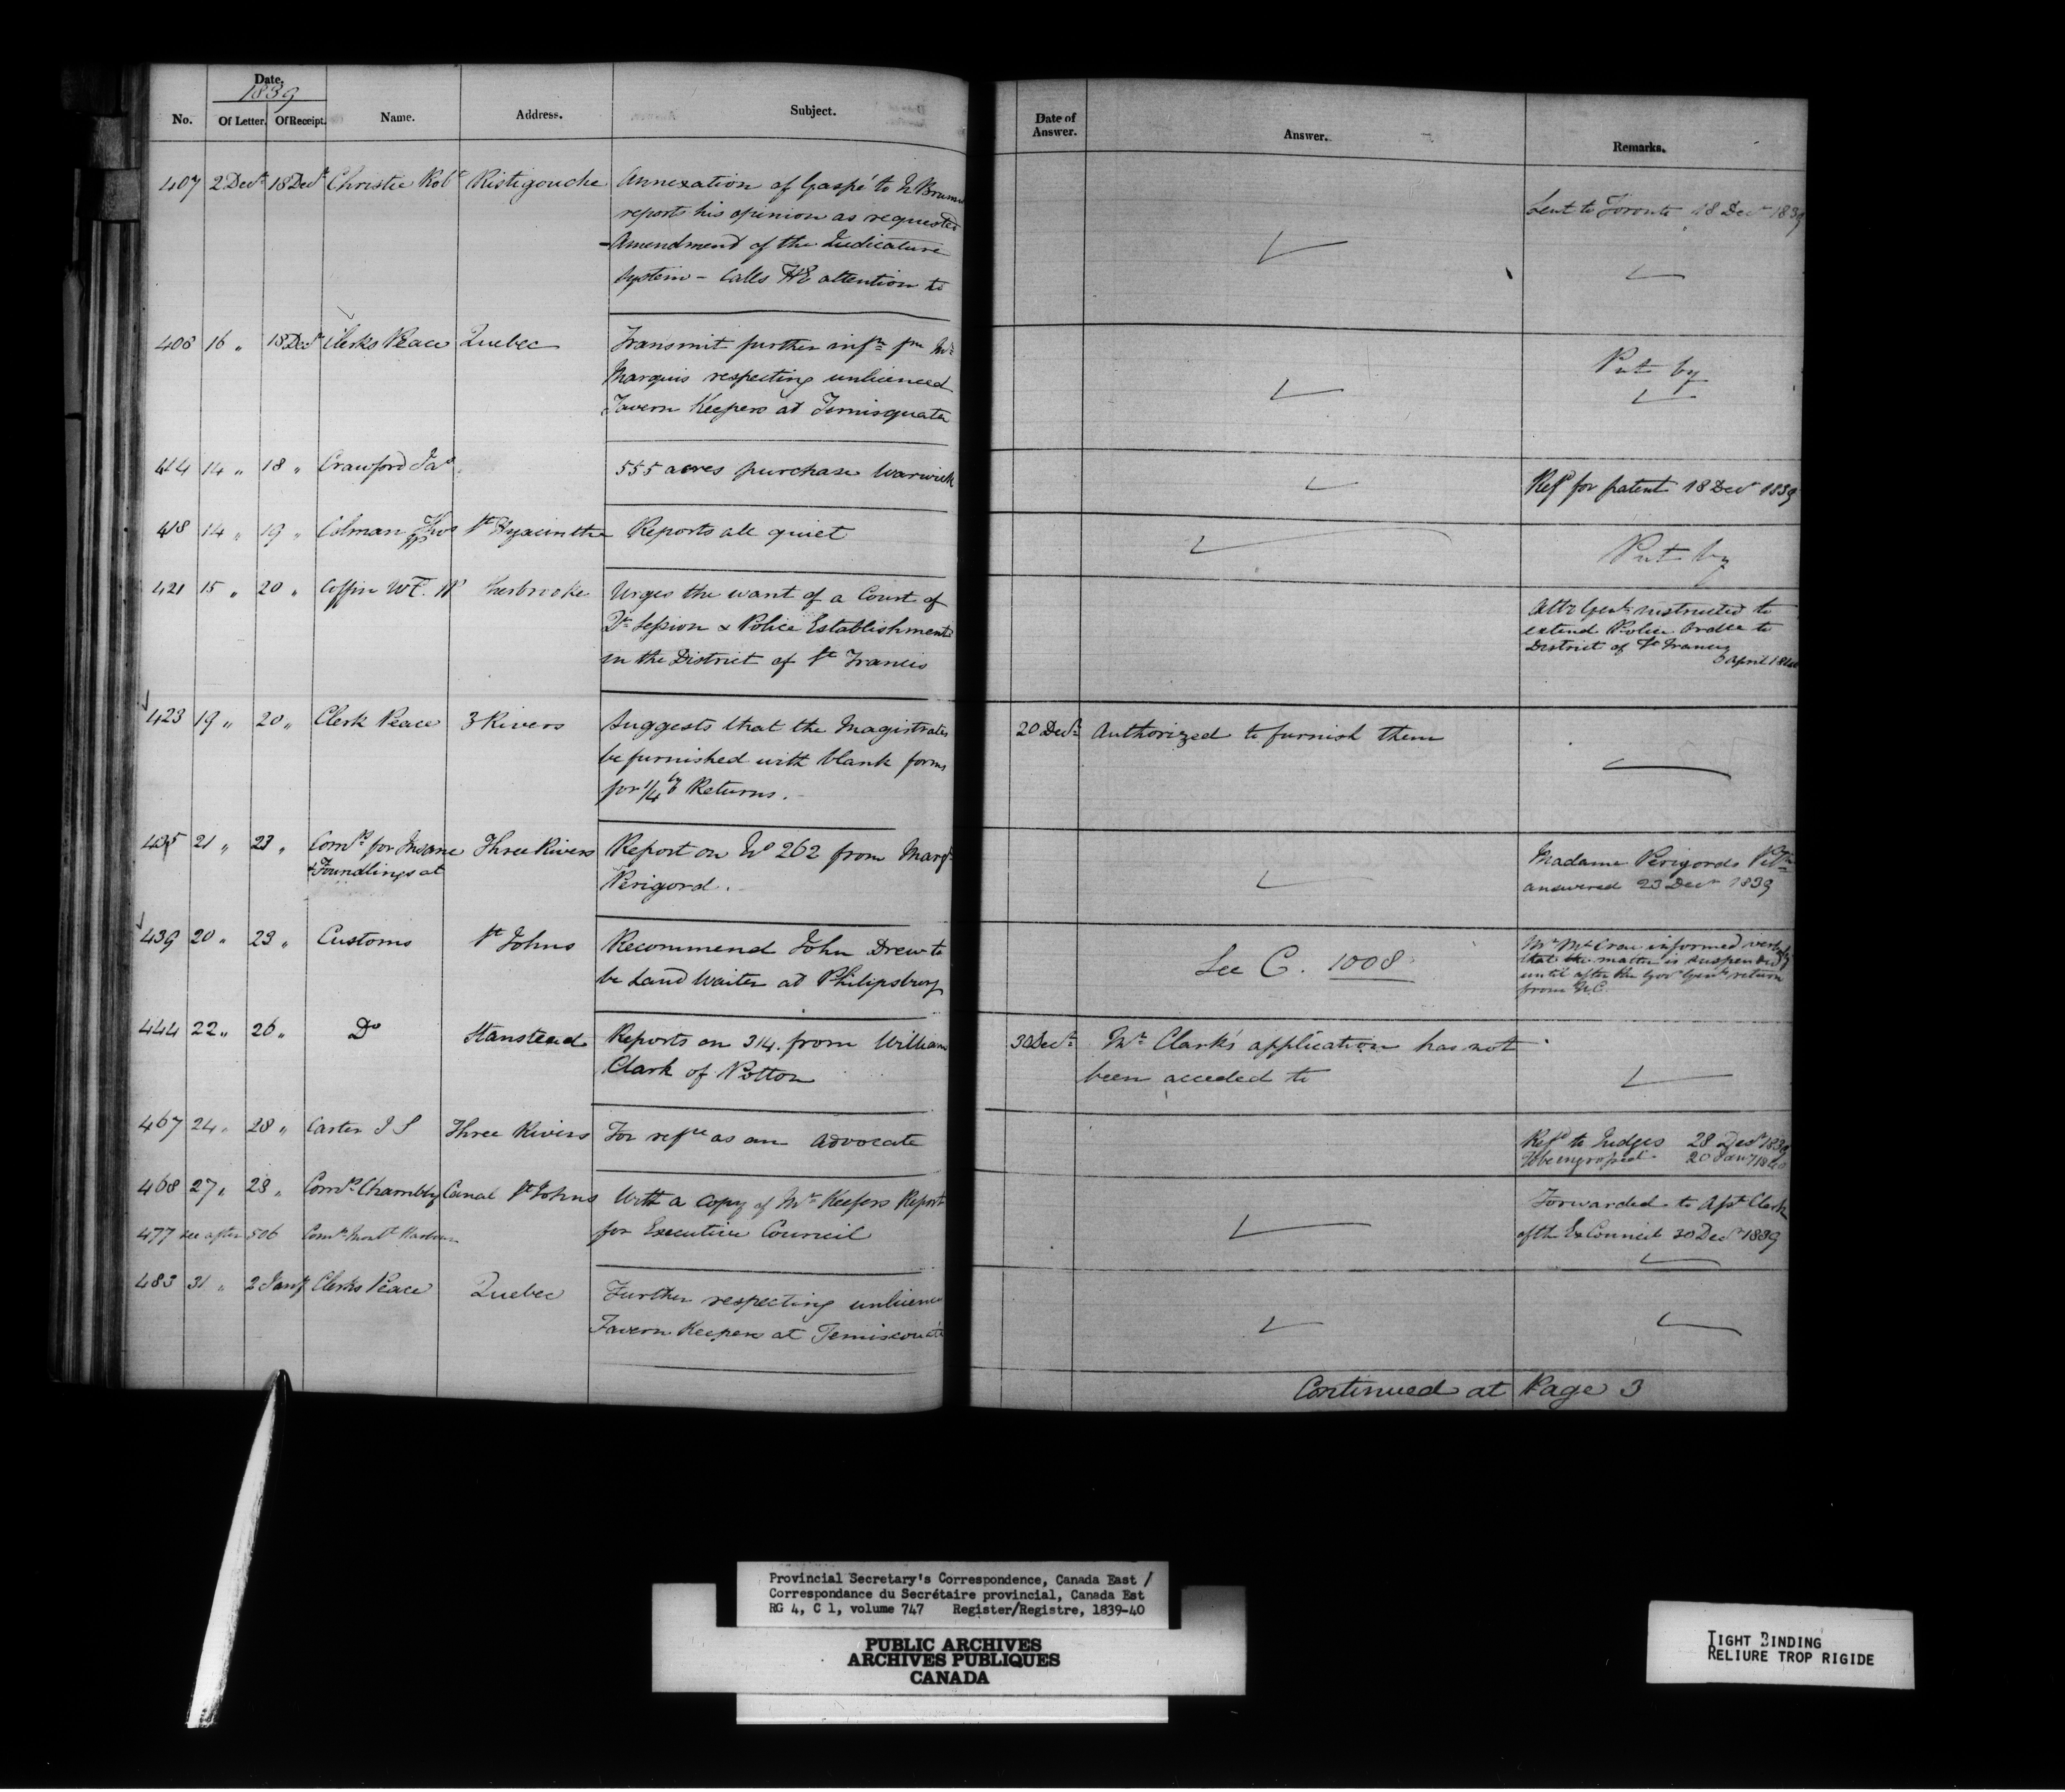 Date.
1839
No. Of Letter. Of Receipt. Name. Address. Subject.
Date of Answer. Answer. Remarks.
407 2 Decr 18 Decr Christie Robt Ristigouche Annexation of Gaspé to N Brunsw
reports his opinion as requested
Amendment of the Judicature
System – Calls HE attention to
Sent to Toronto 18 Decr 1839
408 16 " 18 Decr Clerks Peace Quebec Transmit further infn fm Mr
Marquis respecting unlicenced
Tavern Keepers at Temisquata
Put by
414 14 " 18 " Crawford Jas 555 acres purchase Warwick
Refd for patent 18 Decr 1839
418 14 " 19 " Colman Thos St Hyacinthe Reports all quiet
Put by
421 15 " 20 " Coffin W.F. Sherbrooke Urges the want of a Court of
Qr Session & Police Establishment
in the District of St Francis
Atty Genl instructed to
extend Police Ordce to
District of St Francis
3 April 1840
423 19 " 20 " Clerk Peace 3 Rivers Suggests that the Magistrates
be furnished with blank forms
for 1/4ly Returns.
20 Decr Authorized to furnish them
435 21 " 23 " Comrs for Insane Three Rivers Report on No 262 from Margt
& Foundlings at Perigord.
Madame Perigords Petn
answered 23 Decr 1839
439 20 " 23 " Customs St Johns Recommend John Drew to
be Land Waiter at Philipsburg
See C. 1008
Mr McCrae informed verbally
that the matter is suspended
until after the Govr Genls return
from U.C.
444 22 " 26 " Do Stanstead Reports on 314. from William
Clark of Potton
30 Decr Mr Clark's application has not
been acceded to
467 24 " 28 " Carter J S Three Rivers For refce as an Advocate
Refd to Judges 28 Decr 1839
To be engrossed 20 Jany 1840
468 27 " 28 " Comrs Chambly Canal St Johns With a copy of Mr Keefers Report
for Executive Council
Forwarded to Asst Clerk
of the Ex Council 30 Decr 1839
477 see after 506 Comrs Montl Harbour
483 31 " 2 Jany Clerks Peace Quebec Further respecting unlicenc
Tavern Keepers at Temiscouata
Continued at Page 3
Provincial Secretary's Correspondence, Canada East /
Correspondance du Secrétaire provincial, Canada Est
RG 4, C 1, volume 747 Register/Registre, 1839-40
PUBLIC ARCHIVES
ARCHIVES PUBLIQUES
CANADA
TIGHT BINDING
RELIURE TROP RIGIDE